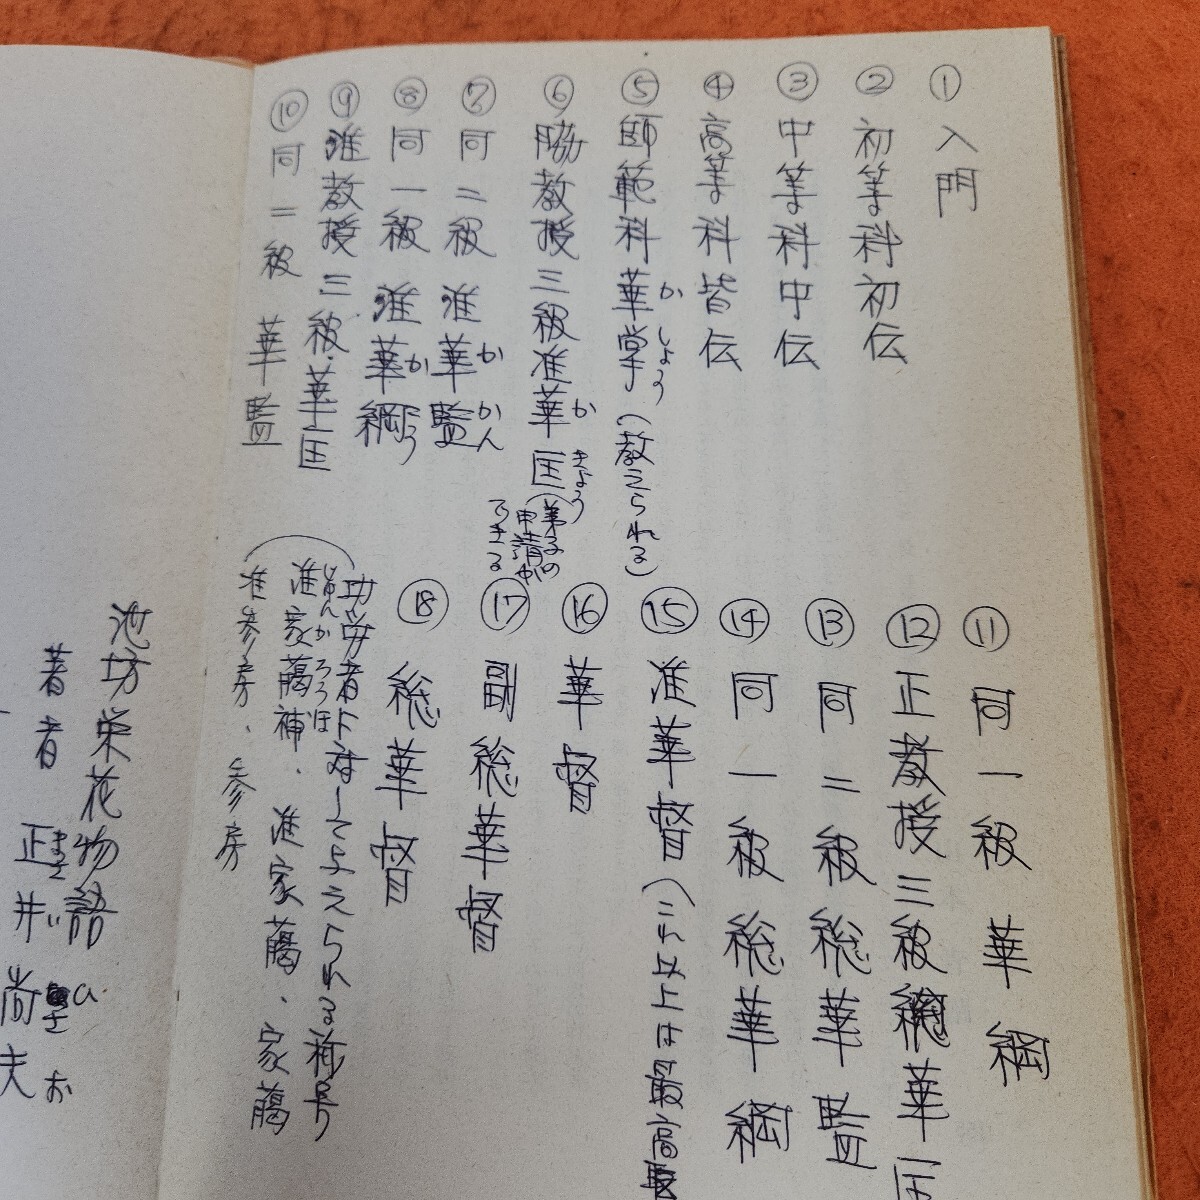 ① 入門
② 初等科初伝
③ 中等科中伝
④ 高等科皆伝
⑤ 師範科華掌(教えられる)
かしょう
⑥ 脇教授三級准華匡
かきょう
(弟子の
申請が
できる
⑦ 同二級 准華監
かかん
⑧ 同一級 准華綱
かこう
⑨ 准教授三級・華匡
⑩ 同二級 華監
⑪ 同一級 華綱
⑫ 正教授三級総華匡
⑬ 同二級総華監
⑭ 同一級総華綱
⑮ 准華督(これ以上は最高
⑯ 華督
⑰ 副総華督
⑱ 総華督
功労者に対して与えられる称号
じゅんかろうほ
准家﨟補・准家﨟・家﨟
准参房・参房
池坊栄花物語
著者 正井尚夫
まさい
お